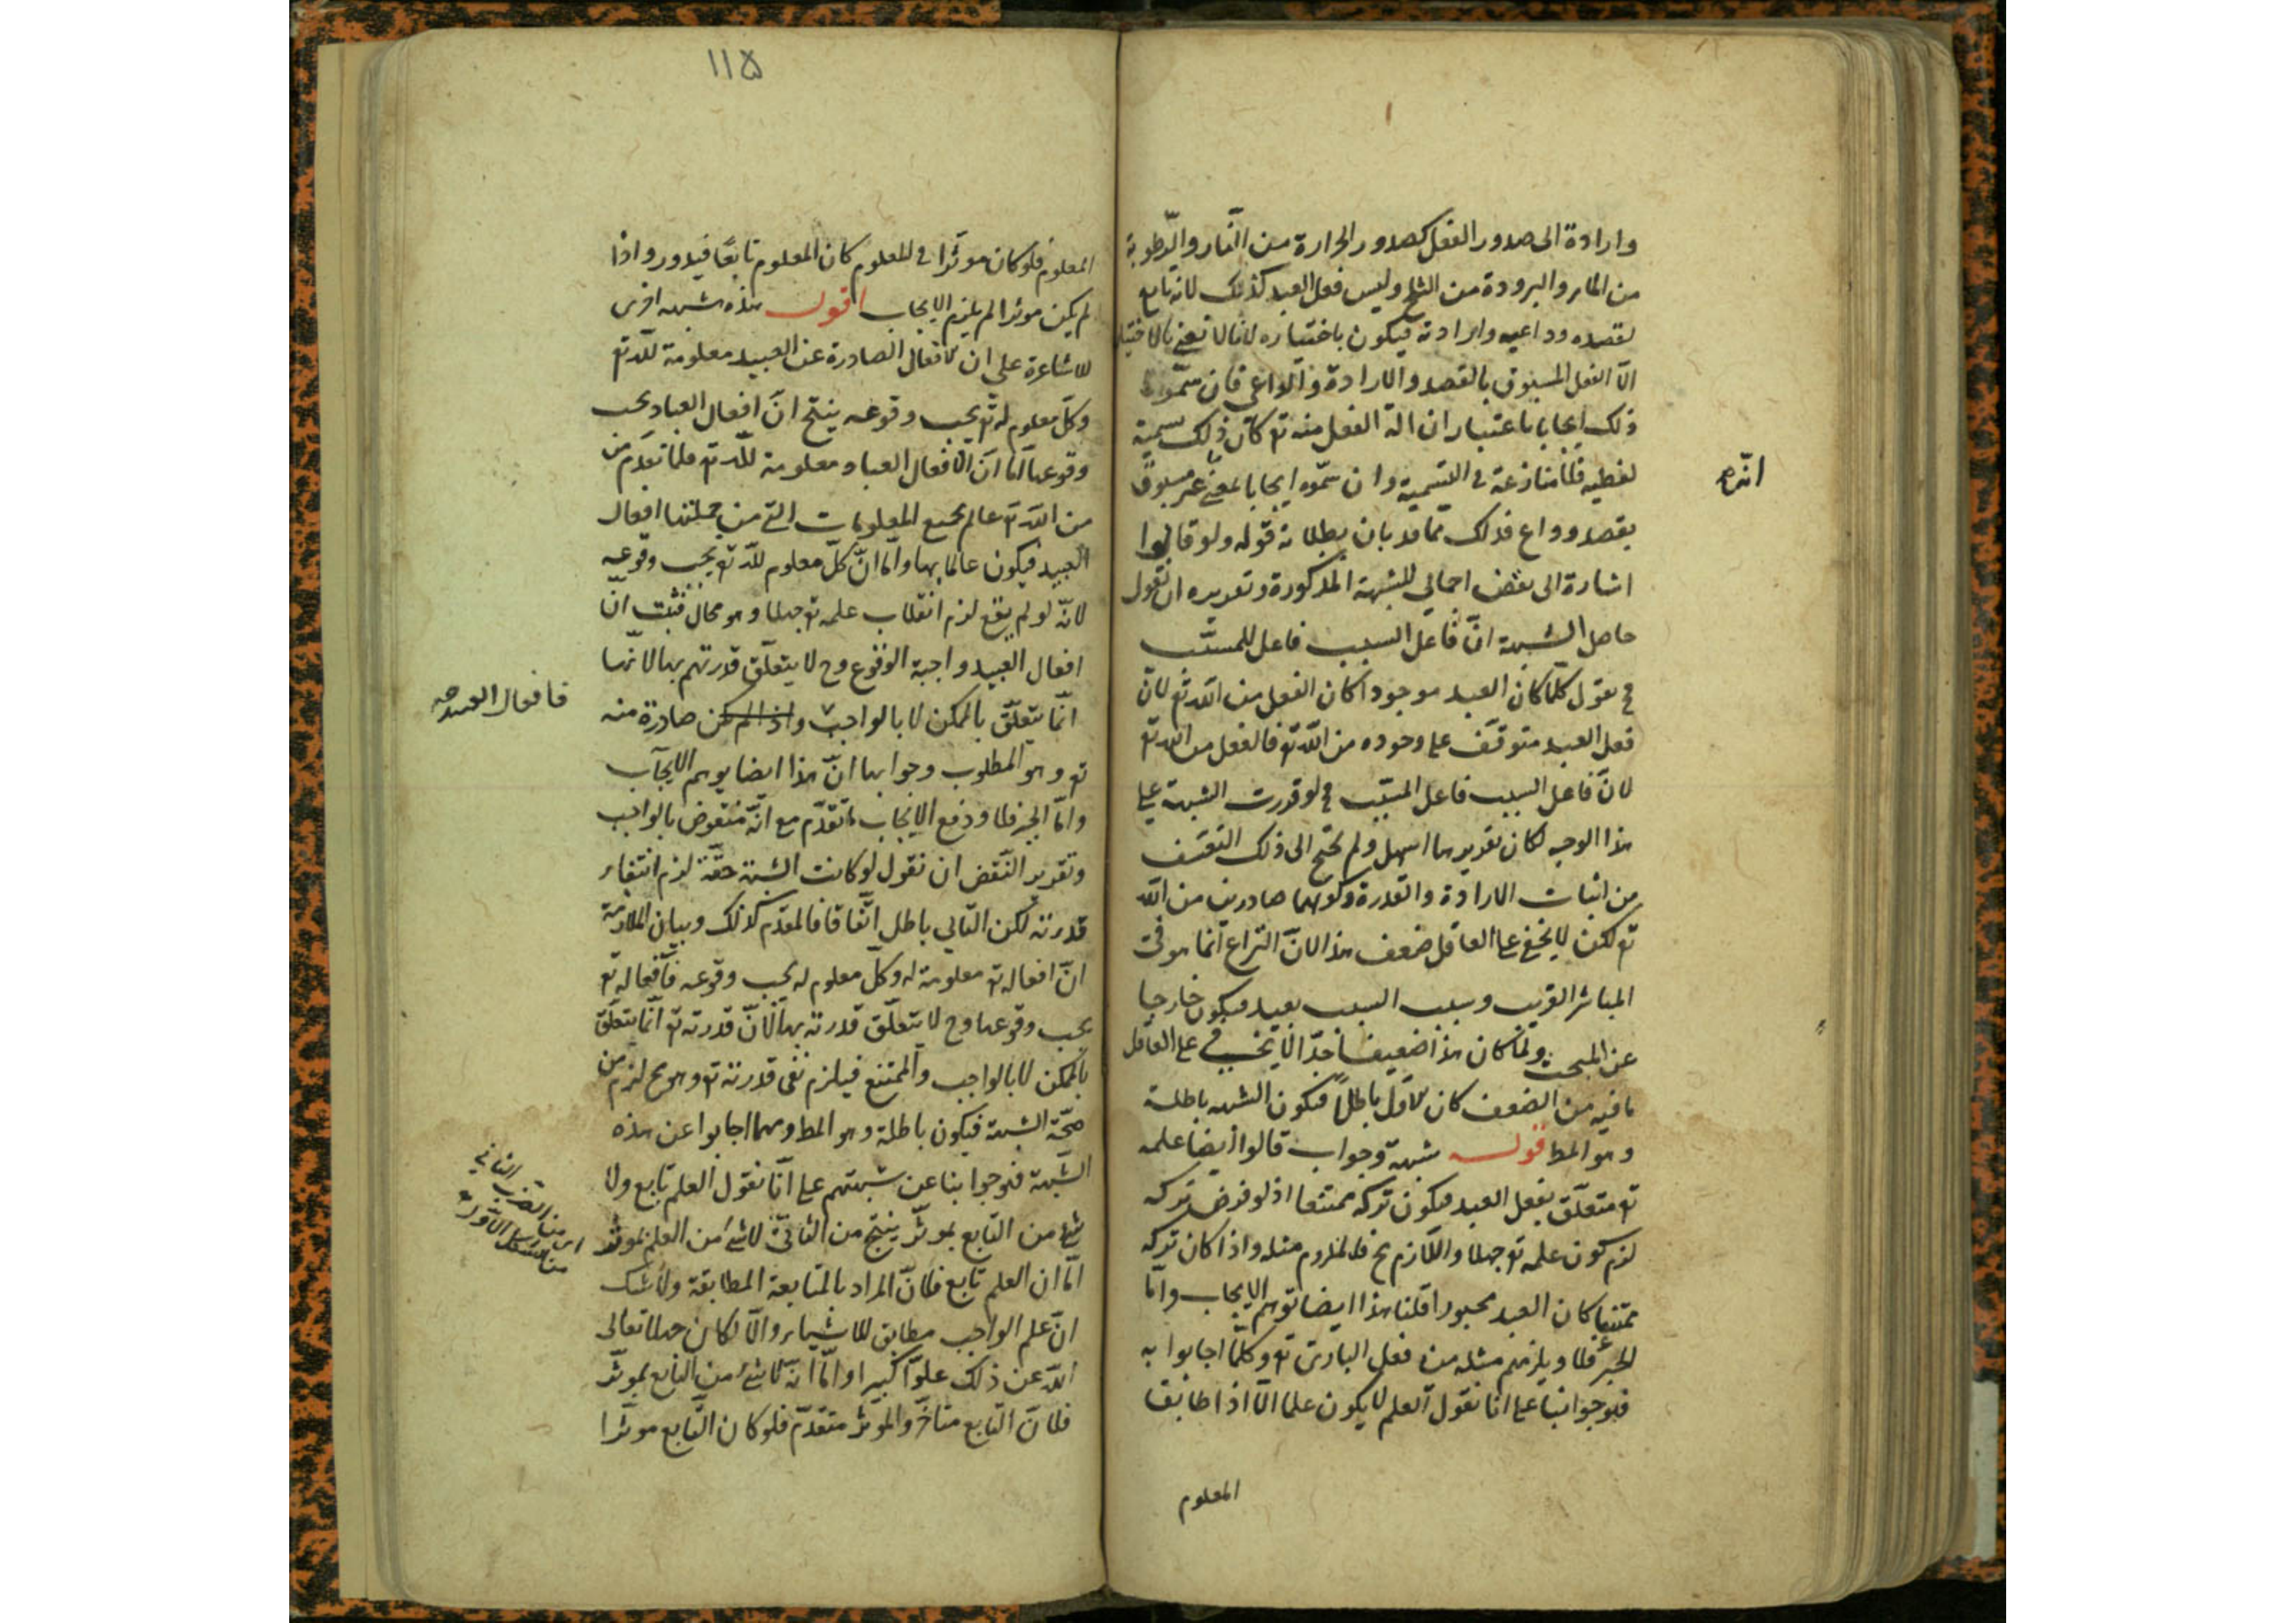 وارادة الى صدور الفعل كصدور الحرارة من النار والرطوبة
من الماء والبرودة من الثلج وليس فعل العبد كذلك لانه تابع
لقصده وداعيه وارادته فيكون باختياره لانا لا نعنى بالاختيار
الا الفعل المسبوق بالقصد والارادة والداعي فان سمّوا
ذلك ايجابا باعتبار ان الة الفعل منه تع كان ذلك تسمية
لفظيه فلا منازعة في التسمية وان سمّوه ايجابا بمعنى غير مسبوق
انّه
بقصد وداع فذلك مما قد بان بطلانه قوله ولو قالوا
اشارة الى نقض اجمالي للشبهة المذكورة وتقريره ان نقول
حاصل الشبهة انّ فاعل السبب فاعل للمسبّب
فح نقول كلما كان العبد موجودا كان الفعل من الله تع لانّ
فعل العبد متوقف على وجوده من الله تع فالفعل من الله تع
لانّ فاعل السبب فاعل المسبّب فح لو قررت الشبهة على
هذا الوجه لكان تقريرها اسهل ولم تحتج الى ذلك التعسّف
من اثبات الارادة والقدرة وكونهما صادرين من الله
تع لكن لا يخفى على العاقل ضعف هذا لانّ النزاع انّما هو في
المباشر القريب وسبب السبب بعيد فيكون خارجا
عن المبحث ولمّا كان هذا ضعيفا جدّا لا يخفى على العاقل
ما فيه من الضعف كان الاول باطلاً فيكون الشبهه باطلة
وهو المط قوله شبهة وجواب قالوا ايضا علمه
تع متعلّق بفعل العبد فيكون تركه ممتنعا اذ لو فرض تركه
لزم كون علمه تع جهلا واللازم مح فالملزوم مثله واذا كان تركه
ممتنعا كان العبد مجبورا قلنا هذا ايضا توهم الايجاب وامّا
الجبر فلا ويلزمهم مثله من فعل البارى تع وكلّما اجابوا به
فهو جوابنا على انا نقول العلم لا يكون علما الّا اذا طابق
المعلوم
١١٥
المعلوم فلو كان موثّرا في المعلوم كان المعلوم تابعًا فيدور واذا
لم يكن موثرا لم يلزم الايجاب اقول هذه شبهه اخرى
للاشاعرة على ان الافعال الصادرة عن العبيد معلومة لله تع
وكلّ معلوم له تع يجب وقوعه ينتج انّ افعال العباد يجب
وقوعها امّا انّ الافعال العباد معلومة لله تع فلما تقدّم من
من الله تع عالم بجميع المعلومات التي من جملتها افعال
العبيد فيكون عالما بها وامّا انّ كلّ معلوم لله تع يجب وقوعه
لانّه لو لم يقع لزم انقلاب علمه تع جهلا وهو محال فثبت انّ
افعال العبيد واجبة الوقوع وح لا يتعلّق قدرتهم بها لانّها
فافعال العبيد صح
انّما يتعلّق بالممكن لا بالواجب واذا لم يكن صادرة منه
تع وهو المطلوب وجوابها انّ هذا ايضا يوهم الايجاب
وامّا الجبر فلا ودفع الايجاب ما تقدّم مع انّه منقوض بالواجب
وتقرير النقض ان نقول لو كانت الشبهة حقّة لزم انتفاء
قدرته لكن التالي باطل اتّفاقا فالمقدّم كذلك وبيان الملازمة
انّ افعاله تع معلومة له وكلّ معلوم له يجب وقوعه فافعاله تع
يجب وقوعها وح لا يتعلّق قدرته بها لانّ قدرته تع انّما يتعلّق
بالممكن لا بالواجب والممتنع فيلزم نفى قدرته تع وهو مح لزم من
صحّة الشبهة فيكون باطلة وهو المط ومهما اجابوا عن هذه
الشبهة فهو جوابنا عن شبهتهم على انّا نقول العلم تابع ولا
شئ من التابع بموثّر ينتج من الثاني لا شئ من العلم بموثر
اى من الضرب الثاني
من الشكل الاوّل
امّا ان العلم تابع فلانّ المراد بالمتابعة المطابقة ولا شك
انّ علم الواجب مطابق للاشياء والّا لكان جهلا تعالى
الله عن ذلك علوّا كبيرا وامّا انّه لا شئ من التابع بموثّر
فلانّ التابع متاخّر والموثر متقدّم فلو كان التابع موثّرا